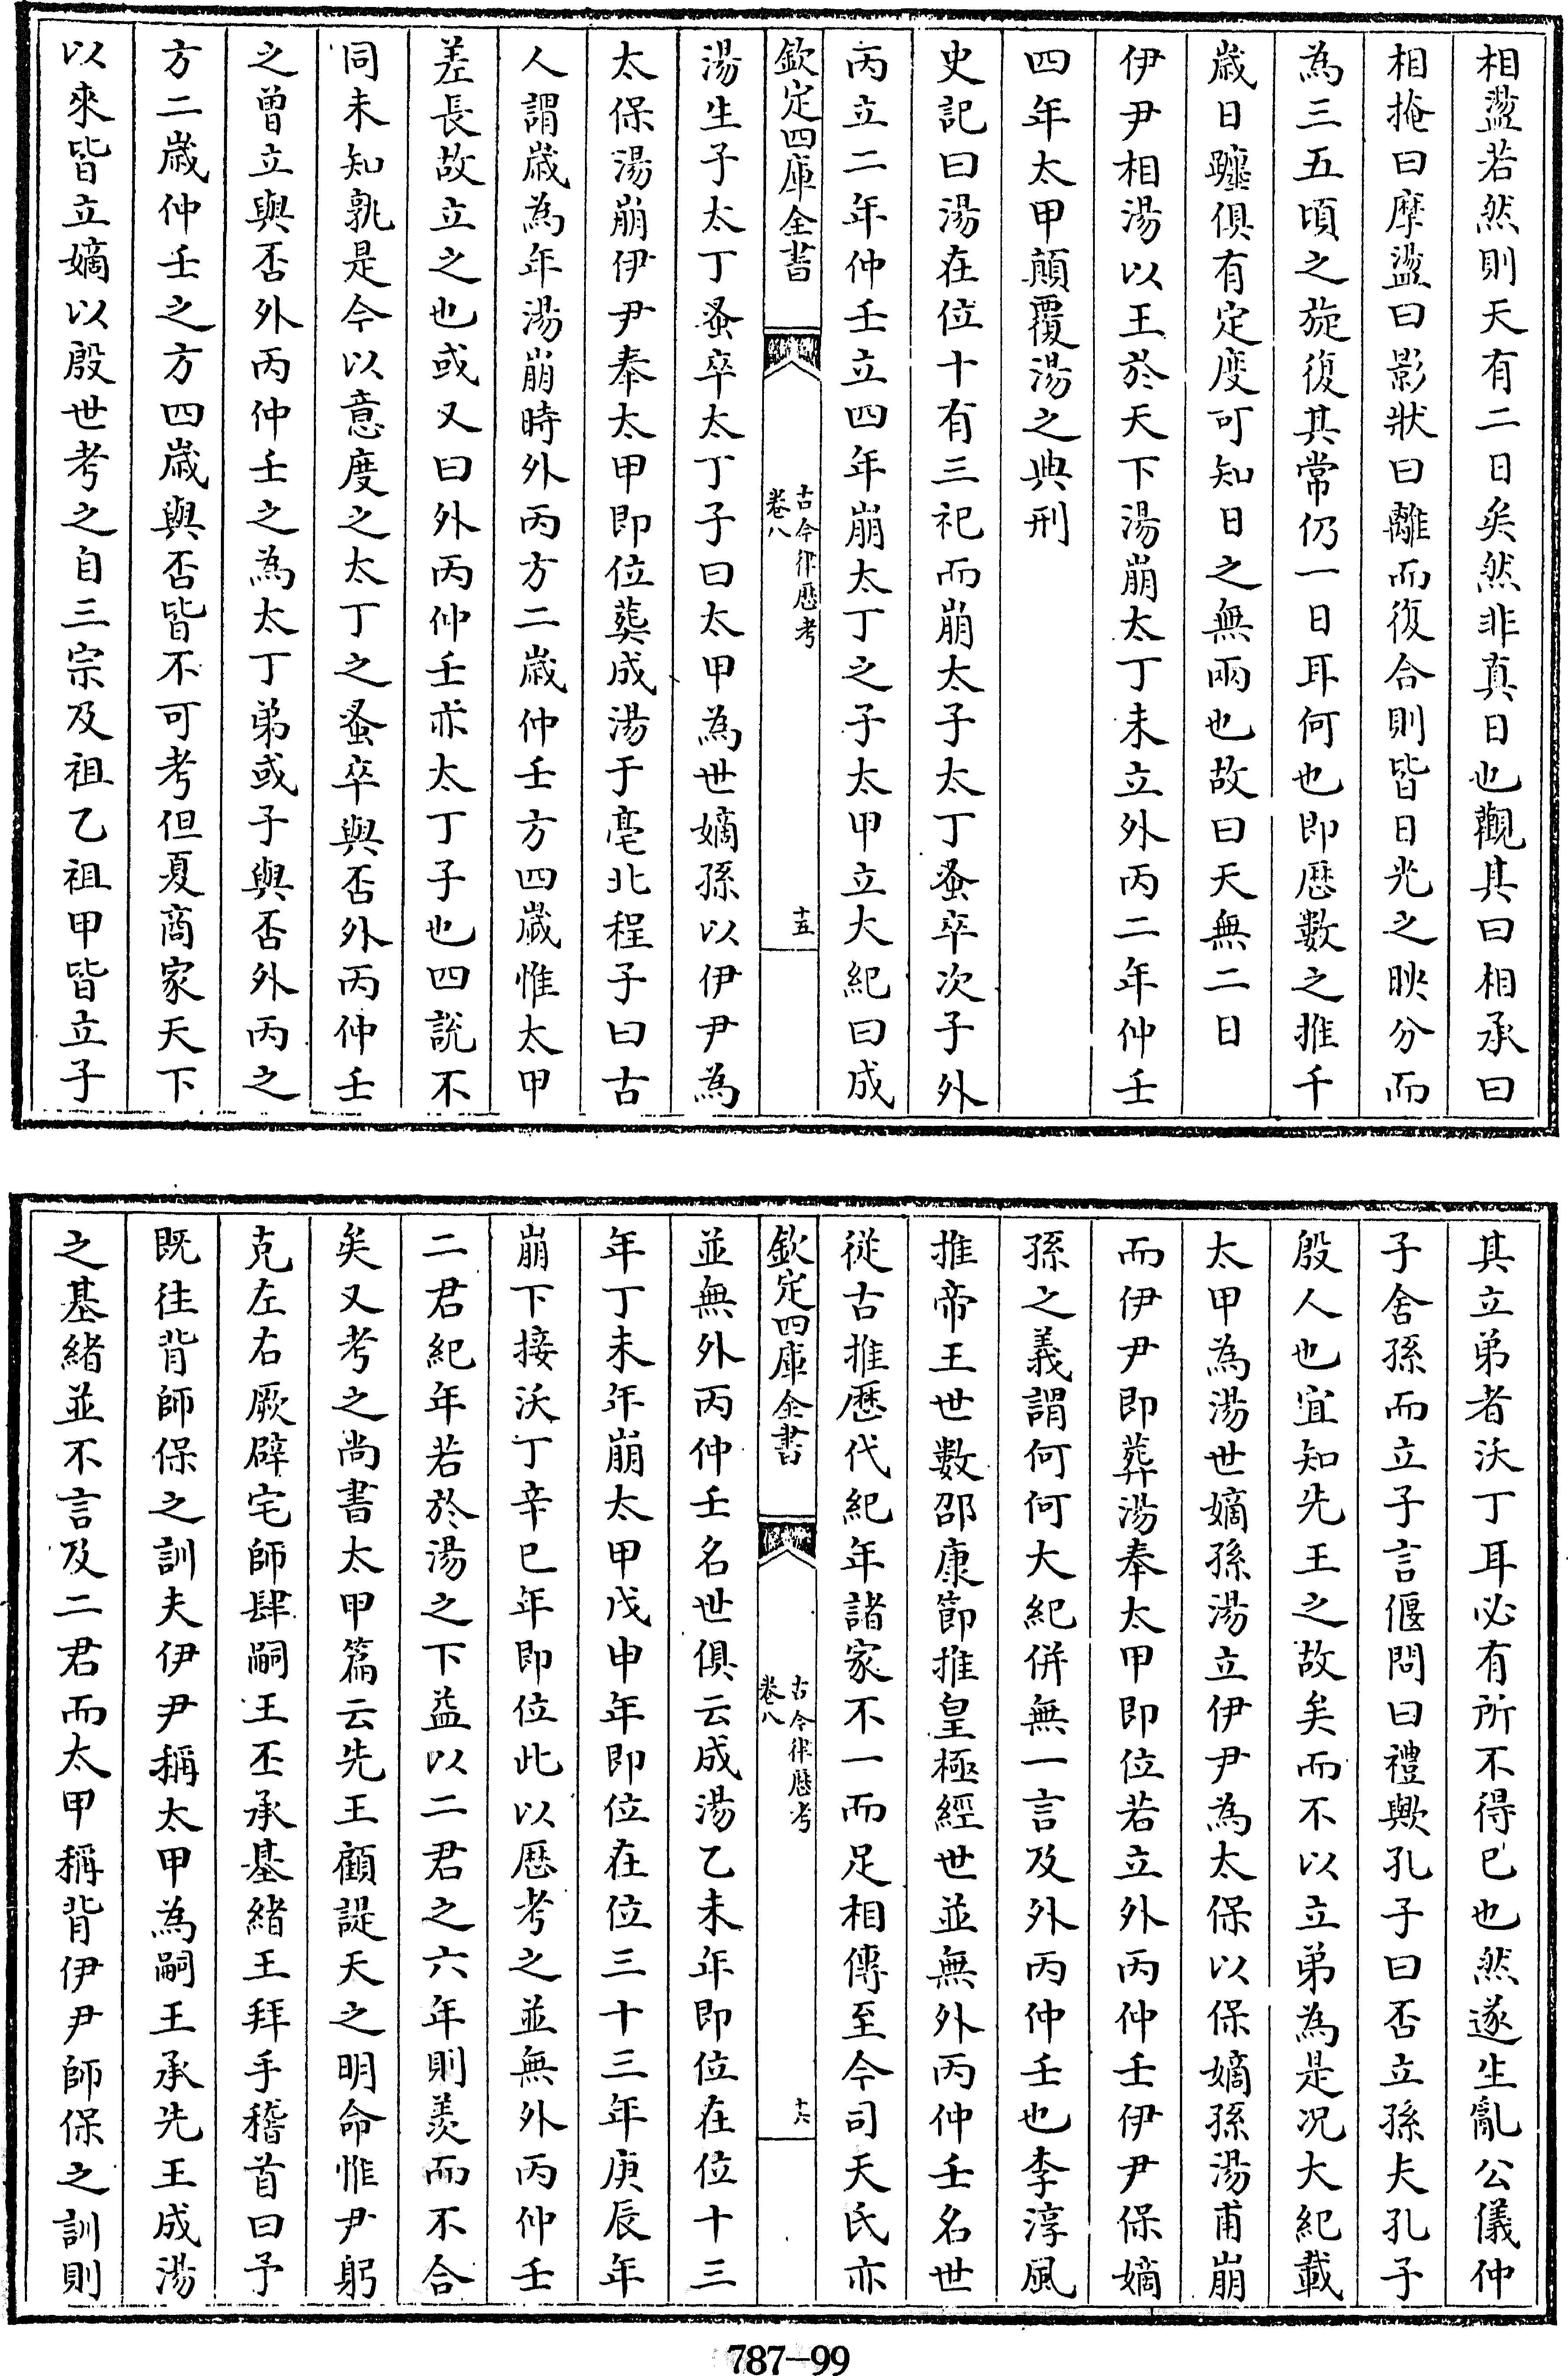 相盪若然則天有二日矣然非真日也觀其曰相承曰
相掩曰摩盪曰影狀曰離而復合則皆日光之映分而
為三五頃之旋復其常仍一日耳何也即歴數之推千
歲日躔俱有定度可知日之無兩也故曰天無二日
伊尹相湯以王於天下湯崩太丁未立外丙二年仲壬
四年太甲顛覆湯之典刑
史記曰湯在位十有三祀而崩太子太丁蚤卒次子外
丙立二年仲壬立四年崩太丁之子太甲立大紀曰成
欽定四庫全書
古今律歴考
卷八
十五
湯生子太丁蚤卒太丁子曰太甲為世嫡孫以伊尹為
太保湯崩伊尹奉太甲即位葬成湯于亳北程子曰古
人謂歲為年湯崩時外丙方二歲仲壬方四歲惟太甲
差長故立之也或又曰外丙仲壬亦太丁子也四說不
同未知孰是今以意度之太丁之蚤卒與否外丙仲壬
之曾立與否外丙仲壬之為太丁弟或子與否外丙之
方二歲仲壬之方四歲與否皆不可考但夏商家天下
以來皆立嫡以殷世考之自三宗及祖乙祖甲皆立子
其立弟者沃丁耳必有所不得已也然遂生亂公儀仲
子舍孫而立子言偃問曰禮歟孔子曰否立孫夫孔子
殷人也宜知先王之故矣而不以立弟為是况大紀載
太甲為湯世嫡孫湯立伊尹為太保以保嫡孫湯甫崩
而伊尹即葬湯奉太甲即位若立外丙仲壬伊尹保嫡
孫之義謂何何大紀併無一言及外丙仲壬也李淳風
推帝王世數邵康節推皇極經世並無外丙仲壬名世
從古推歴代紀年諸家不一而足相傳至今司天氏亦
欽定四庫全書
古今律歴考
卷八
十六
並無外丙仲壬名世俱云成湯乙未年即位在位十三
年丁未年崩太甲戊申年即位在位三十三年庚辰年
崩下接沃丁辛巳年即位此以歴考之並無外丙仲壬
二君紀年若於湯之下益以二君之六年則羡而不合
矣又考之尚書太甲篇云先王顧諟天之明命惟尹躬
克左右厥辟宅師肆嗣王丕承基緒王拜手稽首曰予
既往背師保之訓夫伊尹稱太甲為嗣王承先王成湯
之基緒並不言及二君而太甲稱背伊尹師保之訓則
787-99